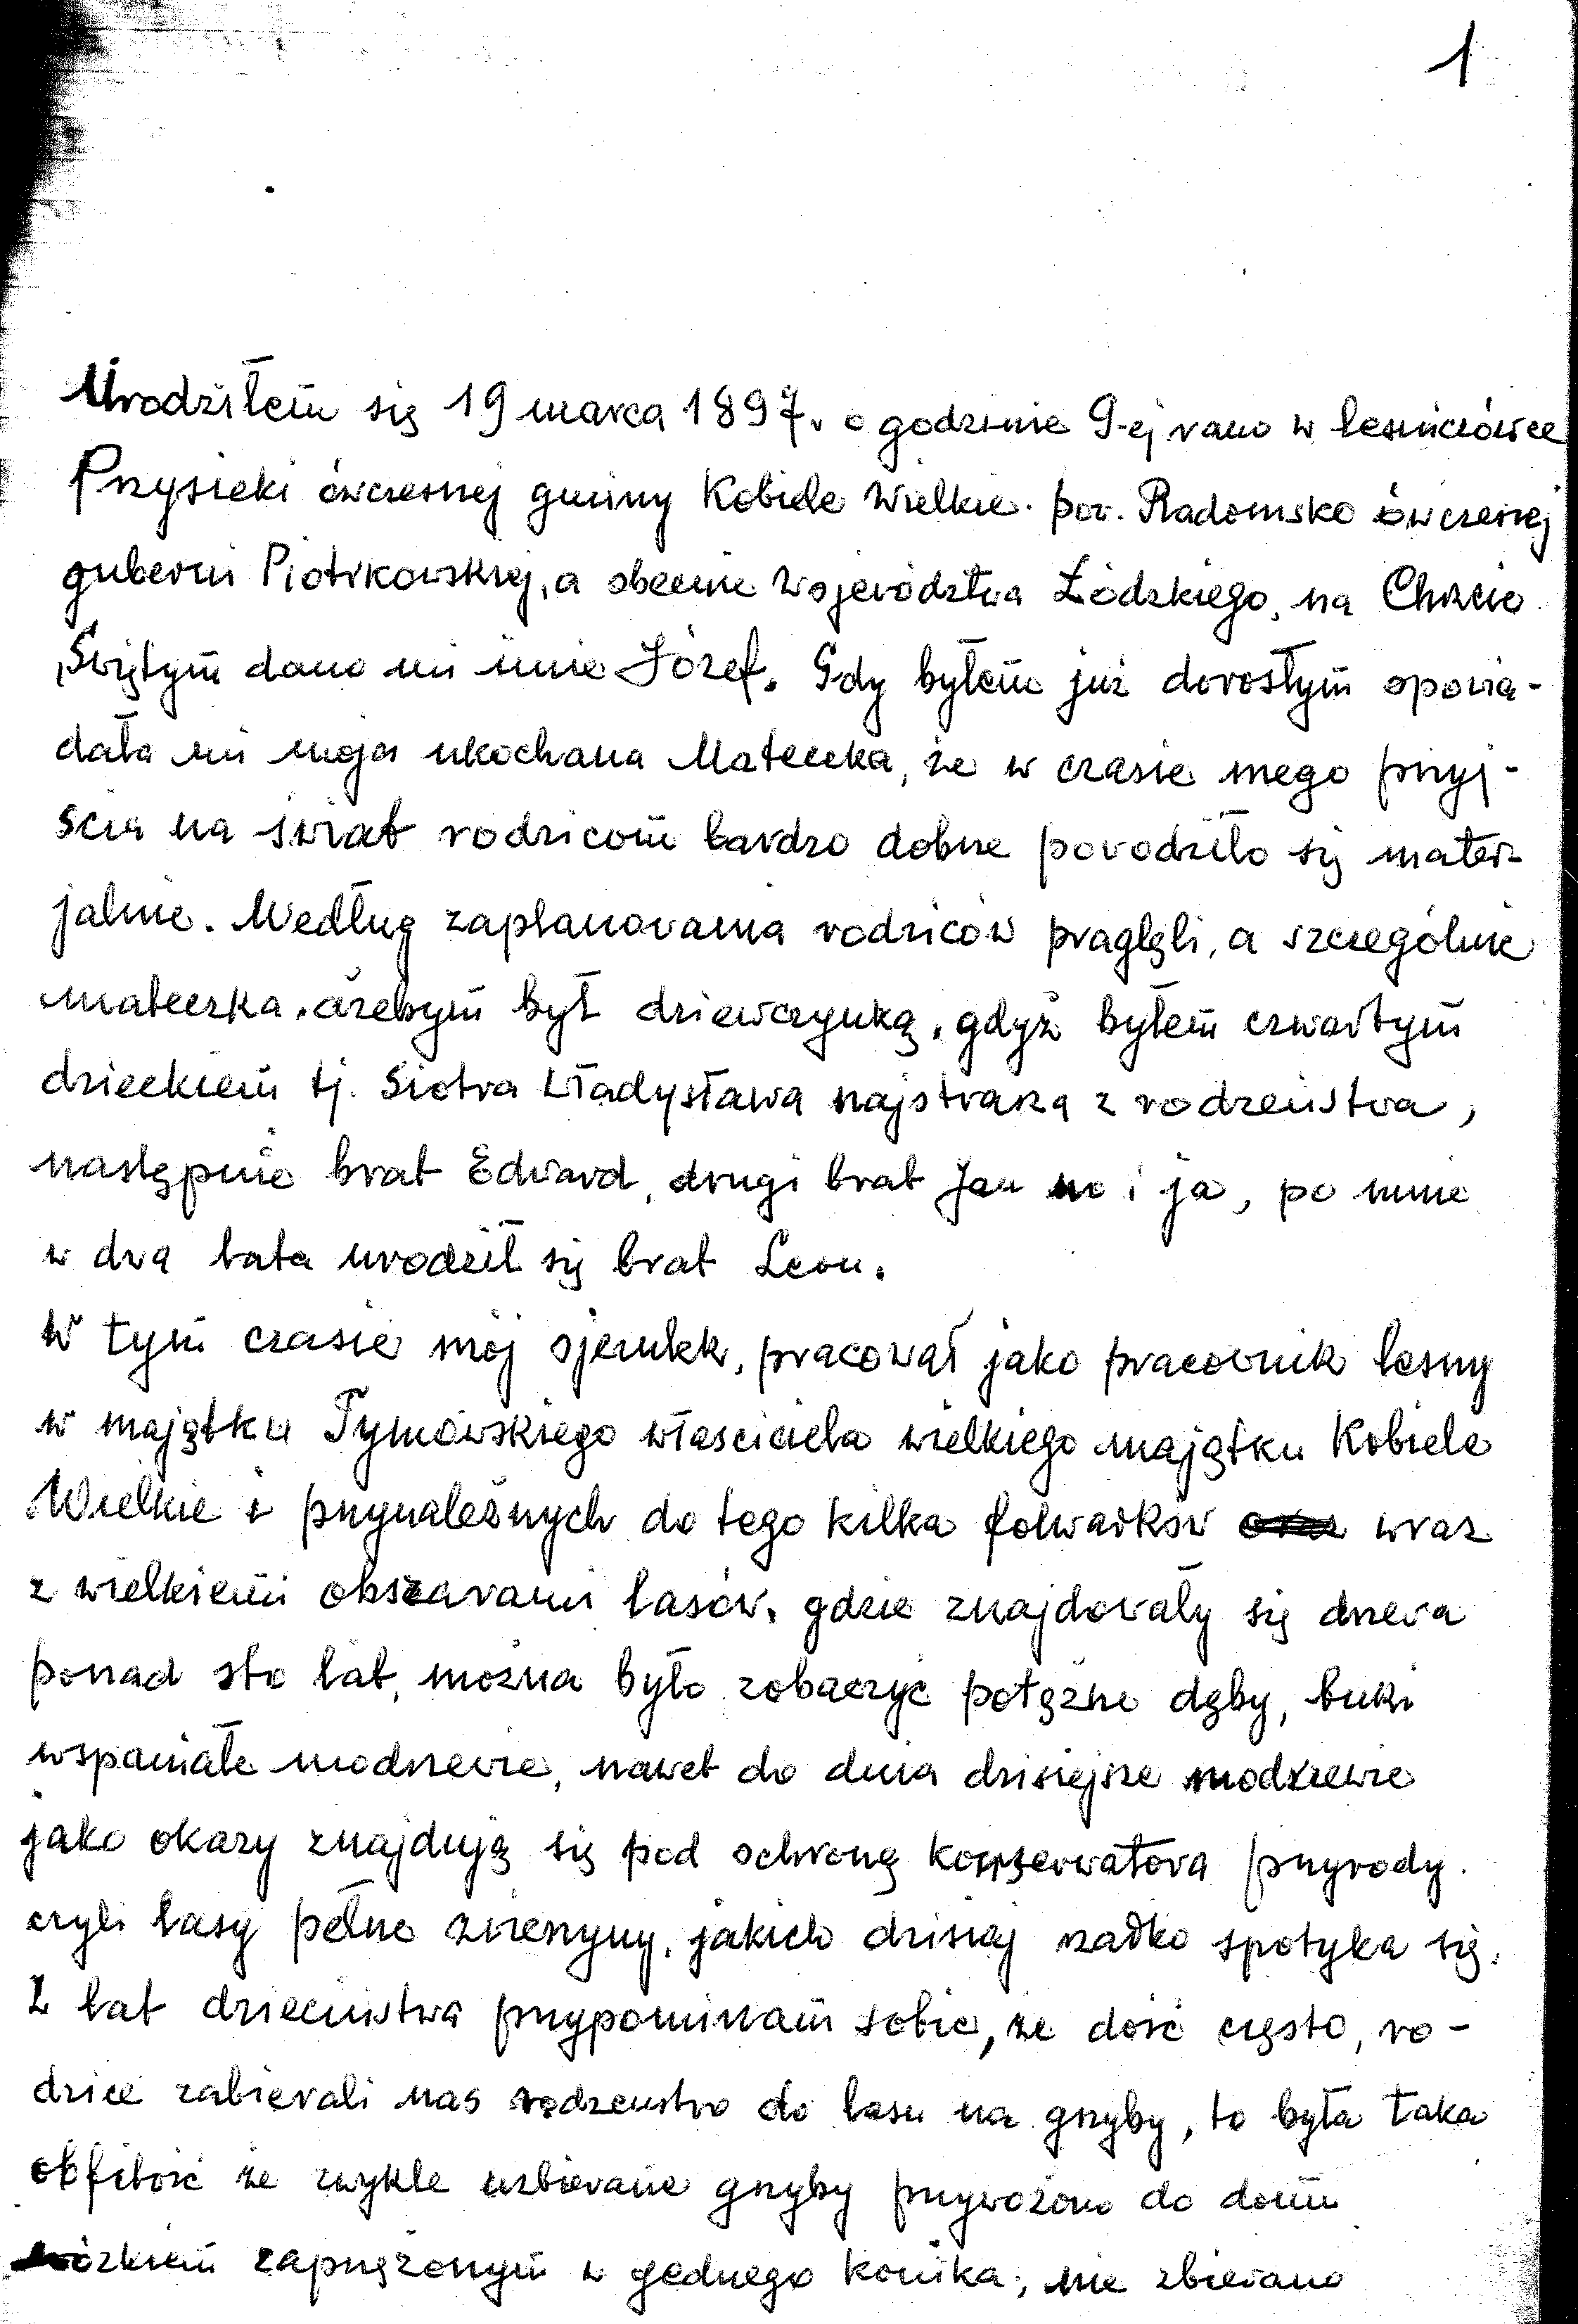 1
Urodziłem się 19 marca 1897. o godzinie 9-ej rano w lesniczówce
Przysieki ówczesnej gminy Kobiele Wielkie. pow. Radomsko ówczesnej
guberni Piotrkowskiej, a obecnie województwa Łódzkiego, na Chrzcie
Świętym dano mi imie Józef. Gdy byłem już dorosłym opowia-
dała mi moja ukochana Mateczka, że w czasie mego przyj-
ścia na świat rodzicom bardzo dobrze powodziło się mater-
jalnie. Według zaplanowania rodziców pragłęli, a szczególnie
mateczka, ażebym był dziewczynką, gdyż byłem czwartym
dzieckiem tj. Siotra Władysława najstrarza z rodzeństwa,
następnie brat Edward, drugi brat Jan no i ja, po mnie
w dwa lata urodził się brat Leon.
W tym czasie mój ojczulek, pracował jako pracownik lesny
w majątku Tymowskiego własciciela wielkiego majątku Kobiele
Wielkie i przynależnych do tego kilka folwarków wraz
z wielkiemi obszarami lasów, gdzie znajdowały się drzewa
ponad sto lat, można było zobaczyć potężne dęby, buki
wspaniałe modrzewie, nawet do dnia dzisiejsze modrzewie
jako okazy znajdują się pod ochroną konserwatora przyrody.
czyli lasy pełne zwierzyny, jakich dzisiaj rzadko spotyka się.
Z lat dzieciństwa przypominam sobie, że dość często, ro-
dzice zabierali nas rodzenstwo do lasu na grzyby, to była taka
obfitość że zwykle uzbierane grzyby przywożono do domu
wózkiem zaprzężonym w jednego konika, nie zbierano